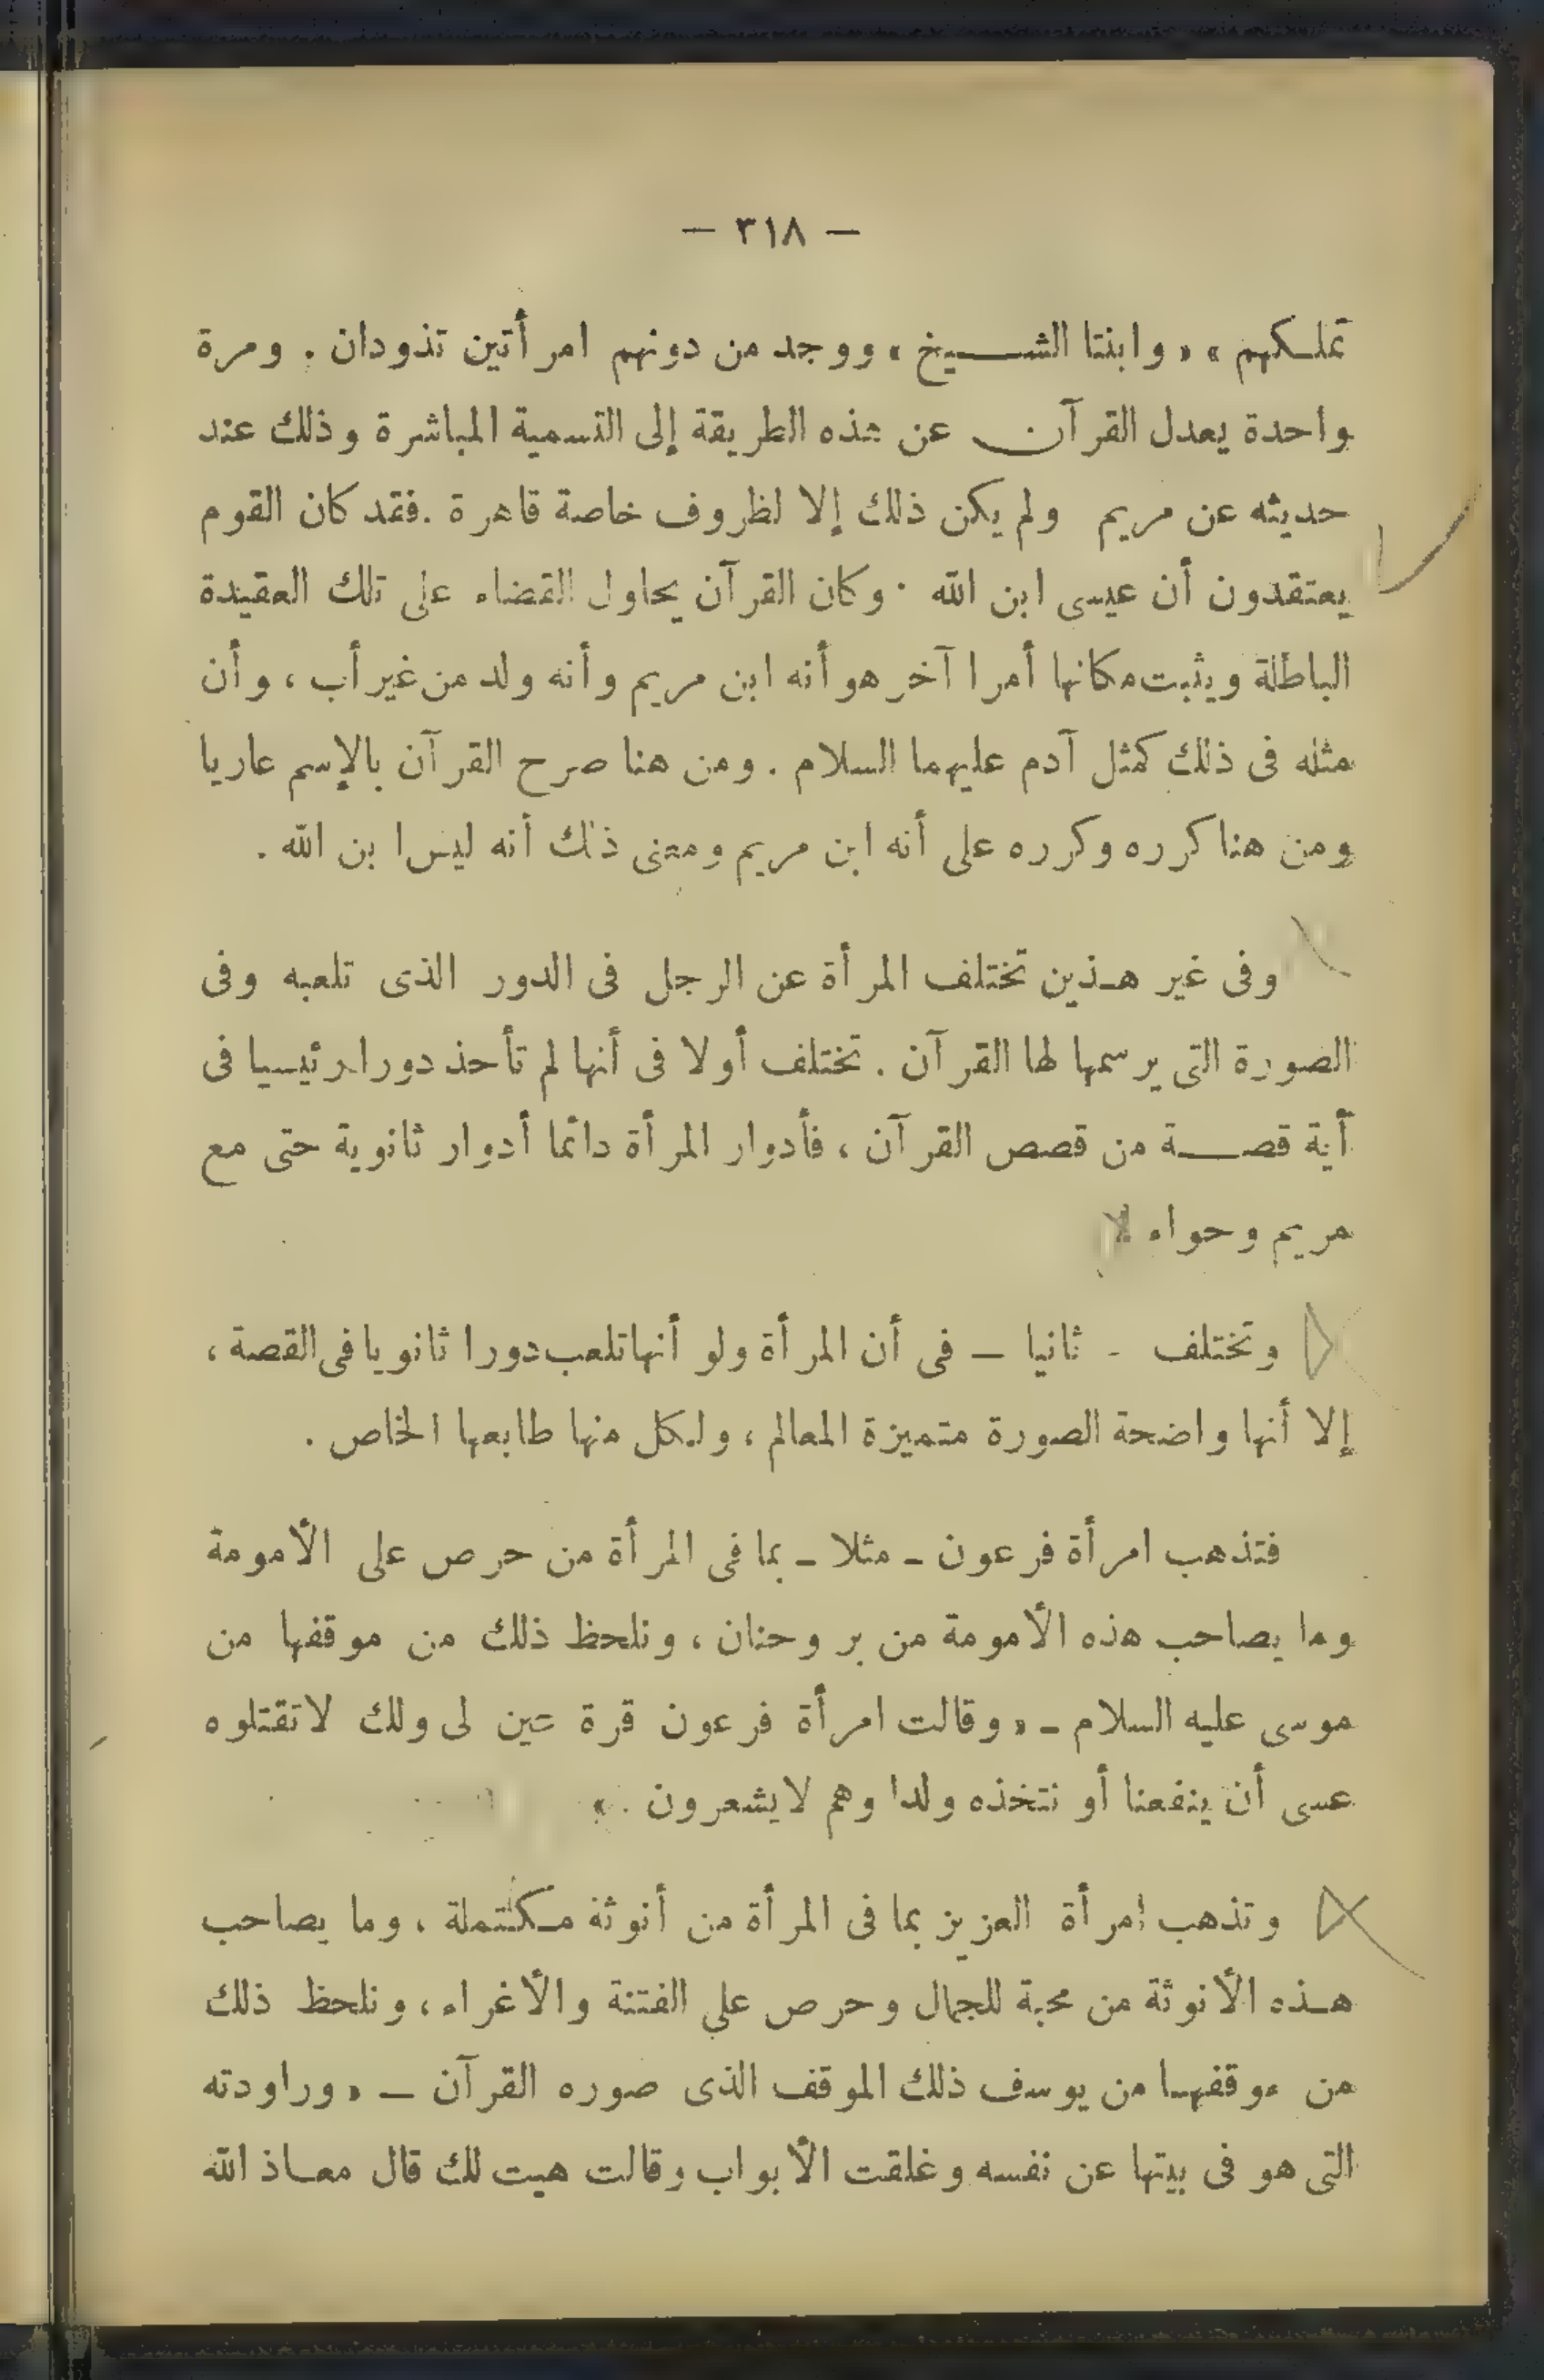 — ٣١٨ —
تملكهم » « وابنتا الشيخ » ووجد من دونهم امرأتين تذودان . ومرة
واحدة يعدل القرآن عن هذه الطريقة إلى التسمية المباشرة وذلك عند
حديثه عن مريم ولم يكن ذلك إلا لظروف خاصة قاهرة . فقد كان القوم
يعتقدون أن عيسى ابن الله . وكان القرآن يحاول القضاء على تلك العقيدة
الباطلة ويثبت مكانها أمرا آخر هو أنه ابن مريم وأنه ولد من غير أب ، وأن
مثله فى ذلك كمثل آدم عليهما السلام . ومن هنا صرح القرآن بالإسم عاريا
ومن هنا كرره وكرره على أنه ابن مريم ومعنى ذلك أنه ليس ا بن الله .
وفى غير هذين تختلف المرأة عن الرجل فى الدور الذى تلعبه وفى
الصورة التى يرسمها لها القرآن . تختلف أولا فى أنها لم تأحذ دورا رئيسيا فى
أية قصة من قصص القرآن ، فأدوار المرأة دائما أدوار ثانوية حتى مع
مريم وحواء
وتختلف - ثانيا — فى أن المرأة ولو أنها تلعب دورا ثانويا فى القصة ،
إلا أنها واضحة الصورة متميزة المعالم ، ولكل منها طابعها الخاص .
فتذهب امرأة فرعون - مثلا - بما فى المرأة من حرص على الأمومة
وما يصاحب هذه الأمومة من بر وحنان ، ونلحظ ذلك من موقفها من
موسى عليه السلام - « وقالت امرأة فرعون قرة عين لى ولك لا تقتلوه
عسى أن ينفعنا أو نتخذه ولدا وهم لا يشعرون . »
وتذهب امرأة العزيز بما فى المرأة من أنوثة مكتملة ، وما يصاحب
هذه الأنوثة من محبة للجمال وحرص على الفتنة والأغراء ، ونلحظ ذلك
من موقفها من يوسف ذلك الموقف الذى صوره القرآن — « وراودته
التى هو فى بيتها عن نفسه وغلقت الأبواب وقالت هيت لك قال معاذ الله